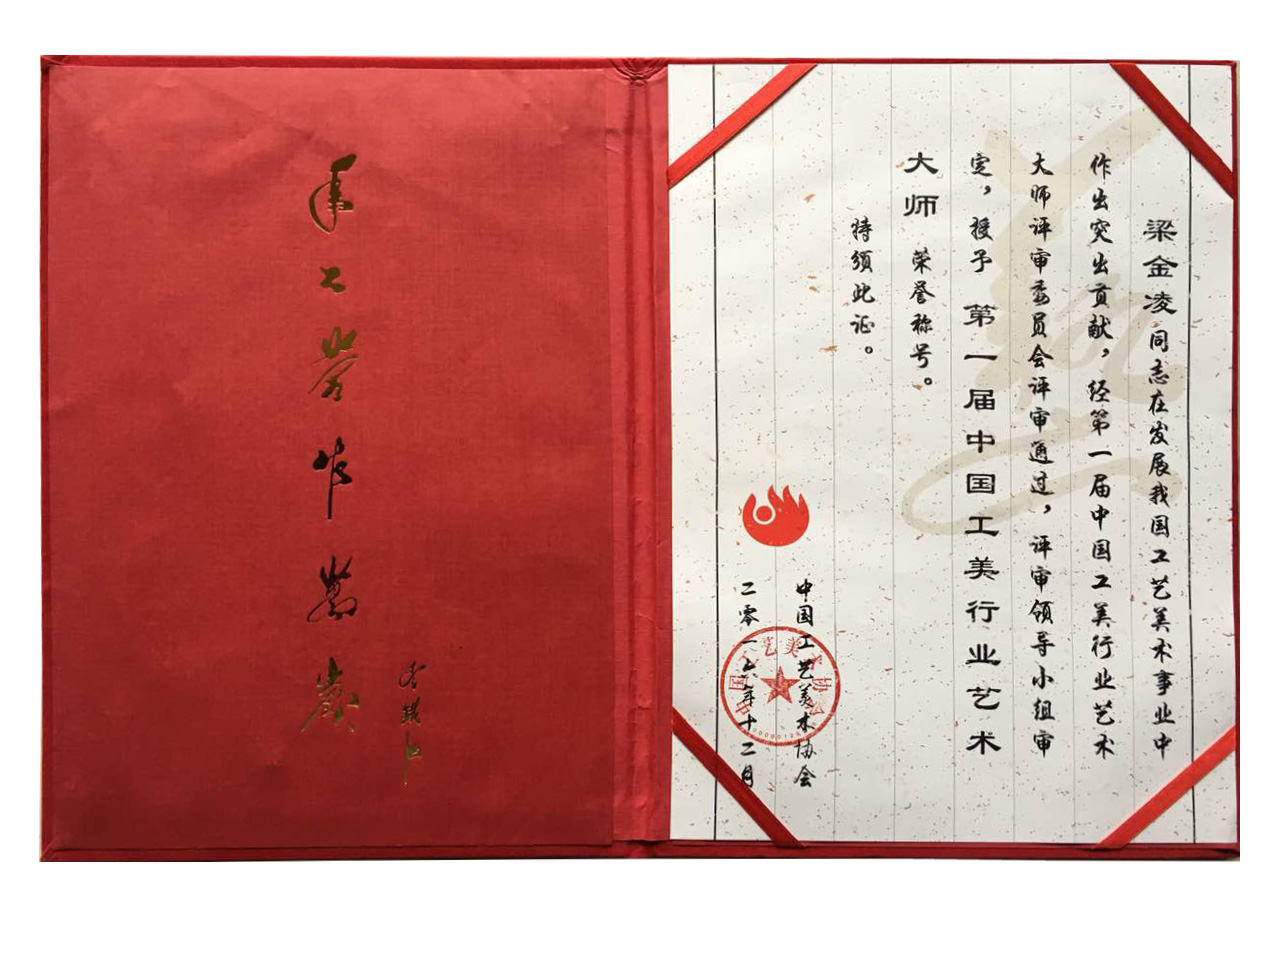 梁金凌同志在发展我国工艺美术事业中
作出突出贡献，经第一届中国工美行业艺术
大师评审委员会评审通过，评审领导小组审
定，授予 第一届中国工美行业艺术
大师 荣誉称号。
特颁此证。
中国工艺美术协会
二零一六年十二月
中国工艺美术协会
工劳作萬歲